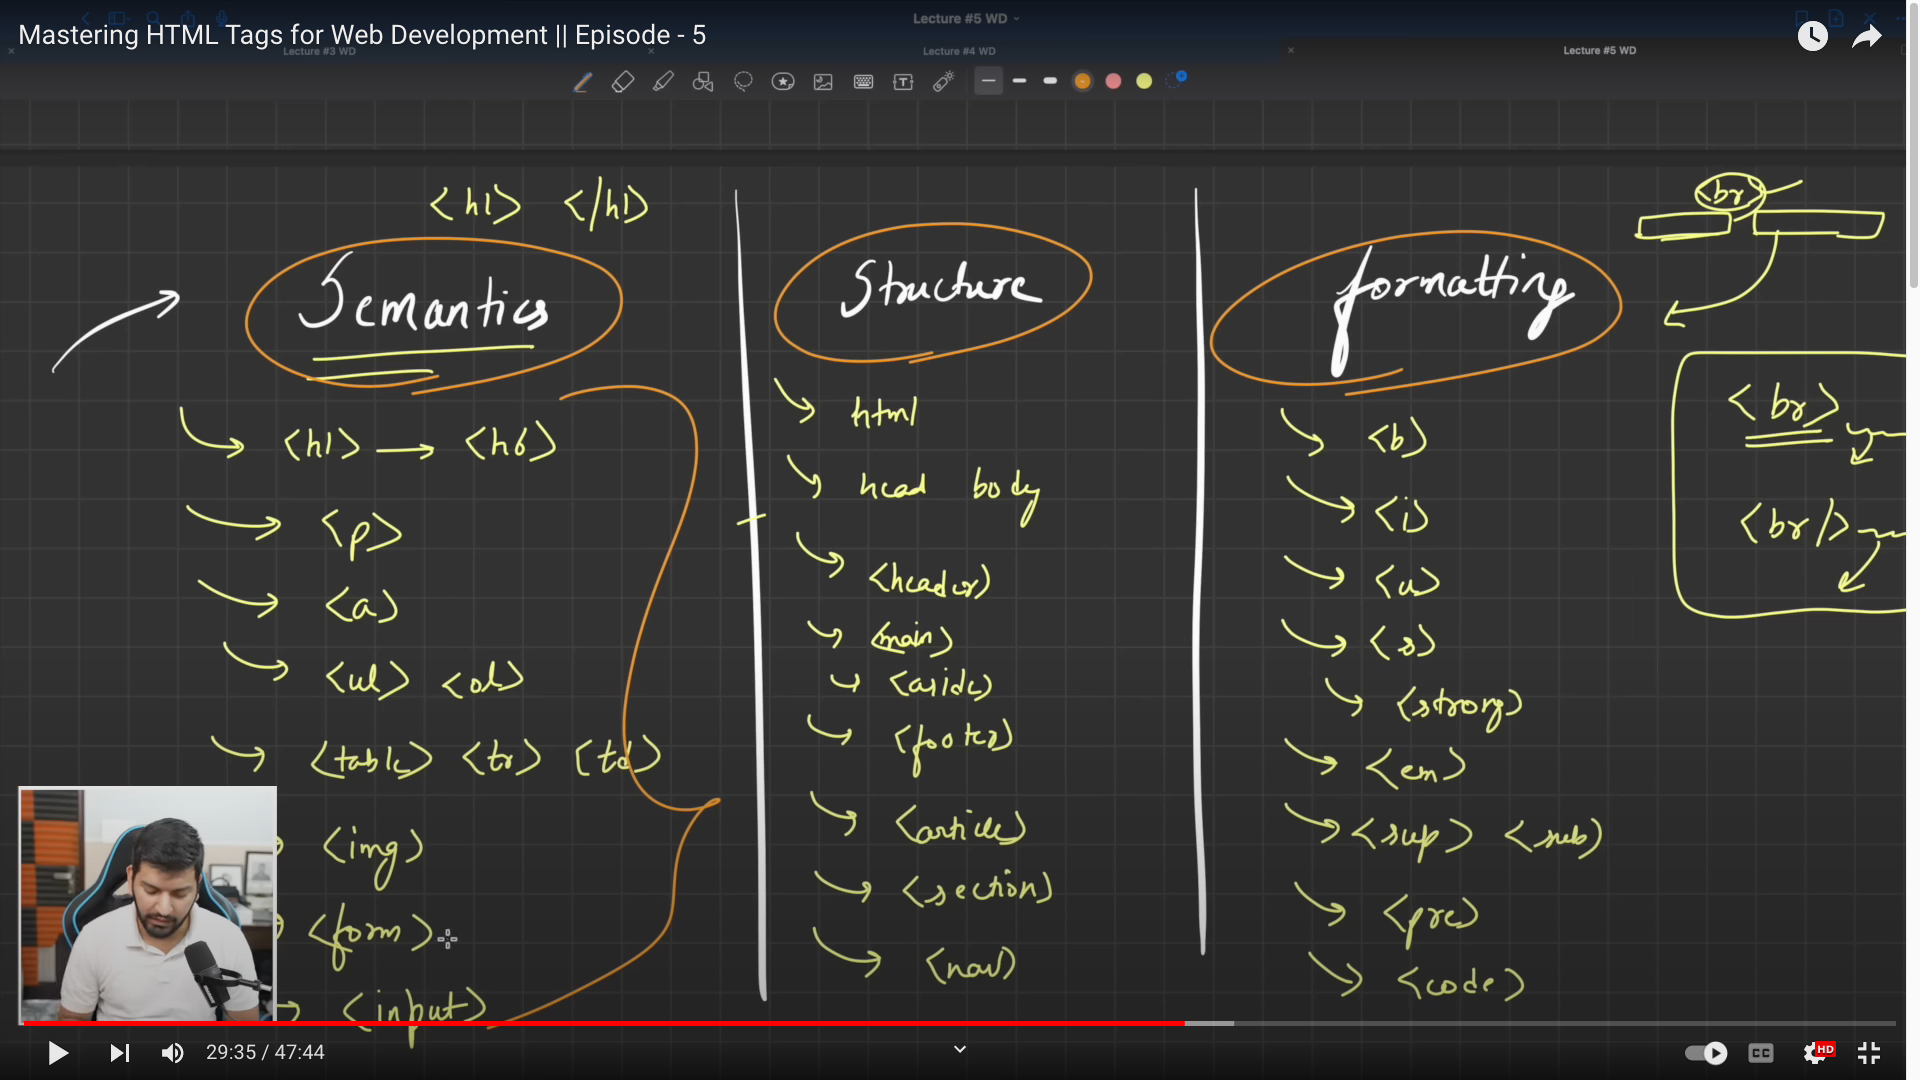 Lecture #5 WD
Mastering HTML Tags for Web Development || Episode - 5
Lecture #3 WD
Lecture #4 WD
Lecture #5 WD
<h1> </h1>
<br>
Semantics
<h1> <h6>
<p>
<a>
<ul> <ol>
<table> <tr> <td>
<img>
<form>
<input>
Structure
html
head body
<header>
<main>
<aside>
<footer>
<article>
<section>
<nav>
formatting
<b>
<i>
<u>
<s>
<strong>
<em>
<sup> <sub>
<pre>
<code>
<br>
<br/>
29:35 / 47:44
CC
HD